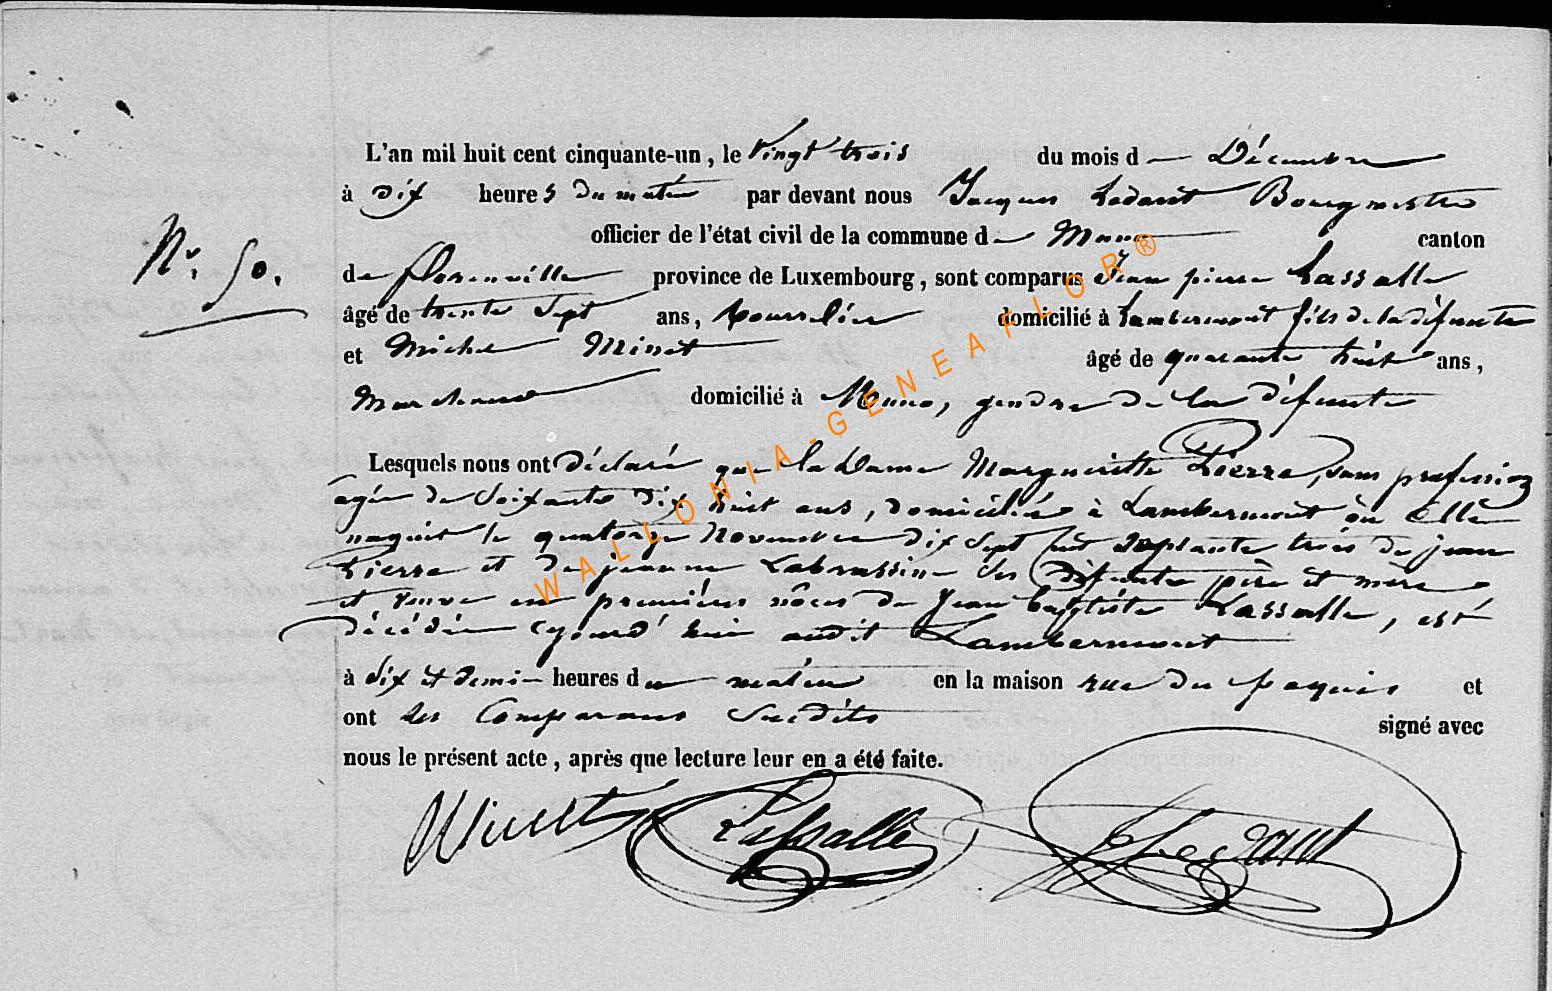 L'an mil huit cent cinquante-un, le Vingt trois du mois d— Décembre
à dix heures du matin par devant nous Jacques Ledant Bourgmestre
officier de l'état civil de la commune d— Muno canton
de florenville province de Luxembourg, sont comparus Jean pierre Lassalle
N°. 50.
âgé de trente Sept ans, bourrelier domicilié à Lambermont fils de la défunte
et Michel Minet âgé de quarante huit ans,
Marchand domicilié à Muno, gendre de la défunte
Lesquels nous ont déclaré que la Dame Margueritte Pierre, sans profession
agée de Soixante dix huit ans, domiciliée à Lambermont où Elle
naquit le quatorze Novembre dix Sept cent Soixante treis de jean
Pierre et de jeanne Labrassine ses défunts père et mère
et veuve en premières nôces de Jean baptiste Lassalle, est
décédée cejourd'hui audit Lambermont
à dix et demi— heures du matin en la maison rue du paquis et
ont les Comparans Susdits signé avec
nous le présent acte, après que lecture leur en a été faite.
Minet Lassalle J Ledant
WALLONIA-GENEAFLOR®